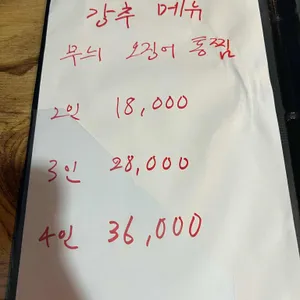 강추 메뉴
무늬 오징어 통찜
2인 18,000
3인 28,000
4인 36,000